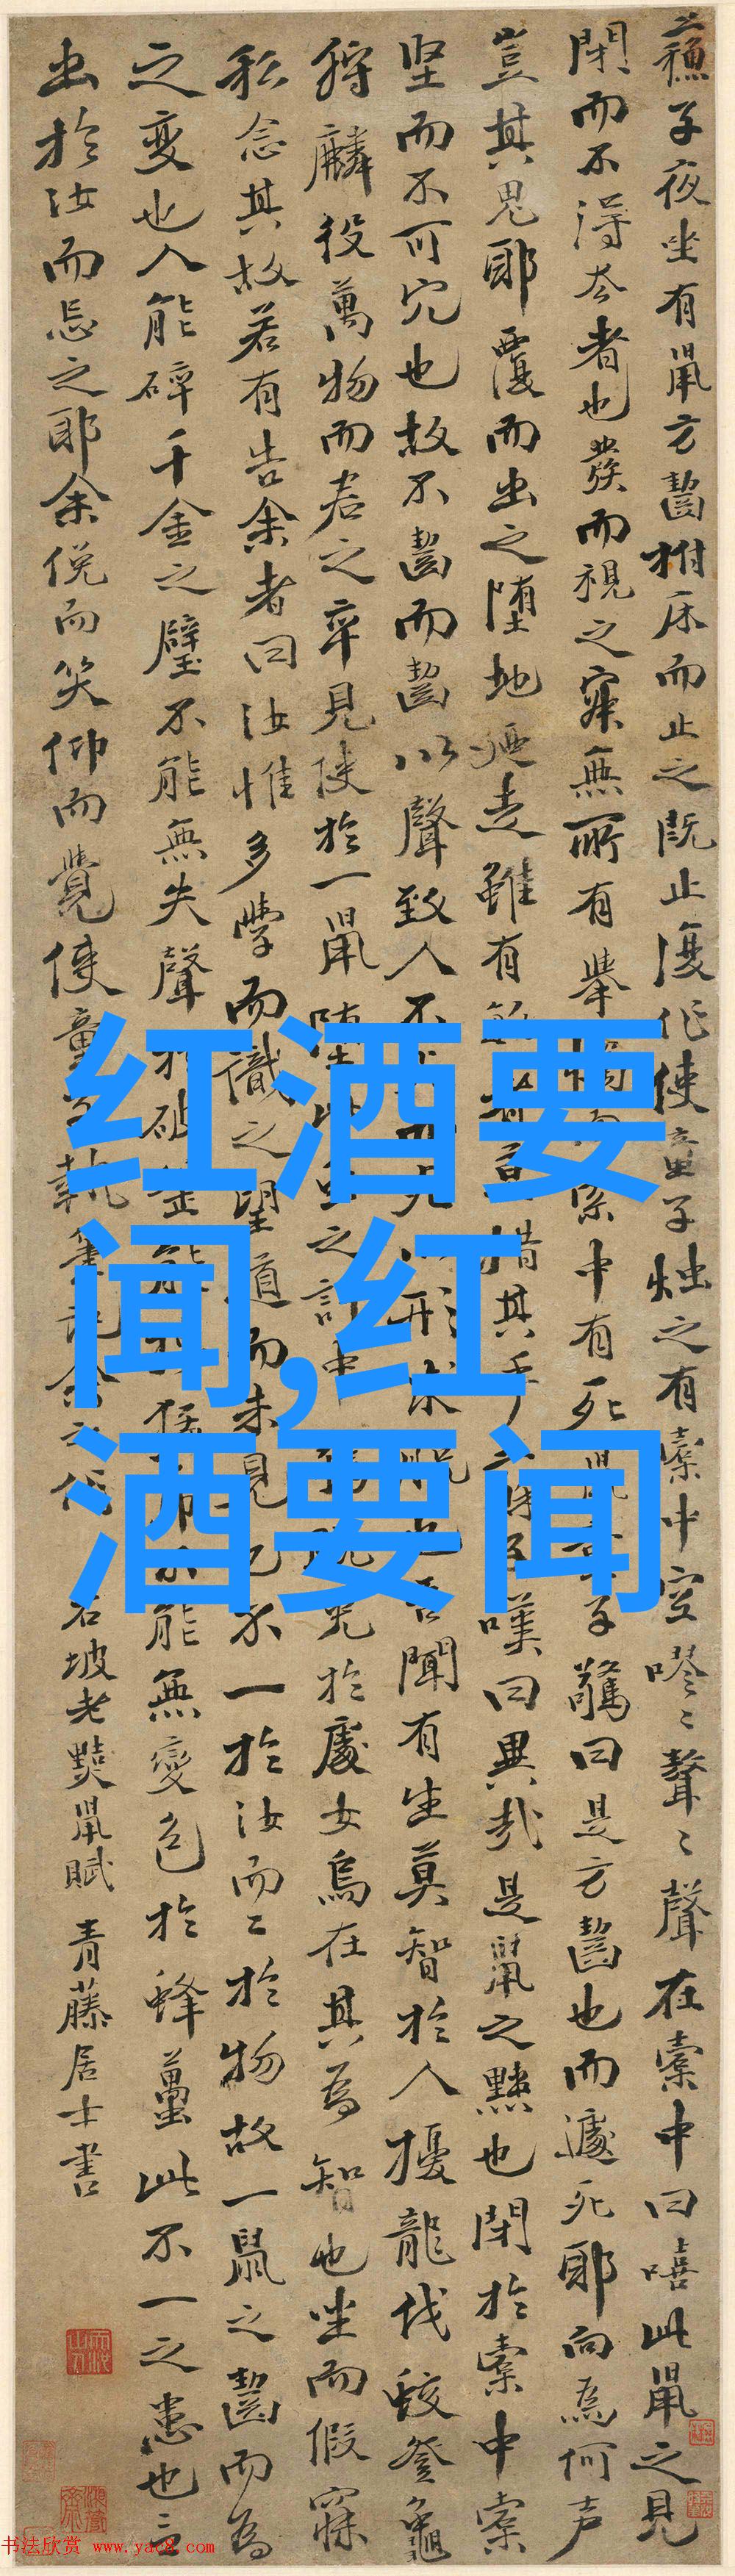 蘇子夜坐有鼠方齧拊床而止之既止復作使童子燭之有橐中空嘐〻聱〻聲在橐中曰嘻此鼠之見
閉而不得去者也發而視之寂無所有舉燭而索中有死鼠童子驚曰是方齧也而遽死耶向為何声
豈其鬼耶覆而出之墮地迺走雖有敏者莫措其手蘇子嘆曰異哉是鼠之黠也閉於橐中橐
坚而不可穴也故不齧而齧以聲致人不死而死以形求脱也吾聞有生莫智於人擾龍伐蛟登龜
狩麟役萬物而君之卒見使於一鼠墮此虫之計中驚脱兔於處女烏在其為智也坐而假寐
私念其故若有告余者曰汝惟多學而識之望道而未見也不一於汝而二於物故一鼠之齧而為
之變也人能碎千金之璧不能無失聲於破釜能搏猛虎不能無變色於蜂蠆此不一之患也言
出於汝而忘之耶余俛而笑仰而覺使童子執筆記余之作 右坡老黠鼠賦 青藤居士書
红酒要
闻,红
酒要闻
书法欣赏 www.yac8.com